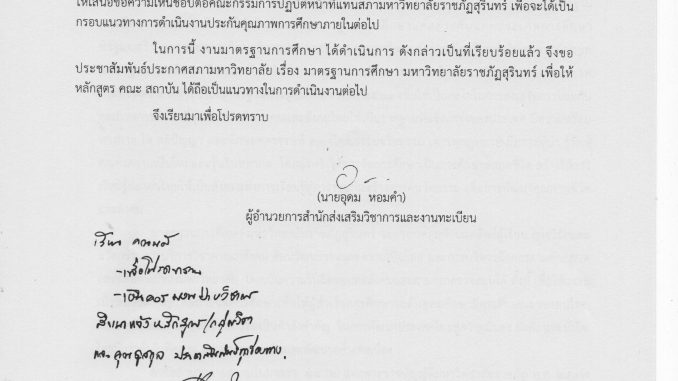 ให้เสนอขอความเห็นชอบต่อคณะกรรมการปฏิบัติหน้าที่แทนสภามหาวิทยาลัยราชภัฏสุรินทร์ เพื่อจะได้เป็น
กรอบแนวทางการดำเนินงานประกันคุณภาพการศึกษาภายในต่อไป
ในการนี้ งานมาตรฐานการศึกษา ได้ดำเนินการ ดังกล่าวเป็นที่เรียบร้อยแล้ว จึงขอ
ประชาสัมพันธ์ประกาศสภามหาวิทยาลัย เรื่อง มาตรฐานการศึกษา มหาวิทยาลัยราชภัฏสุรินทร์ เพื่อให้
หลักสูตร คณะ สถาบัน ได้ถือเป็นแนวทางในการดำเนินงานต่อไป
จึงเรียนมาเพื่อโปรดทราบ
(นายอุดม หอมคำ)
ผู้อำนวยการสำนักส่งเสริมวิชาการและงานทะเบียน
เรียน คณบดี
-เพื่อโปรดทราบ